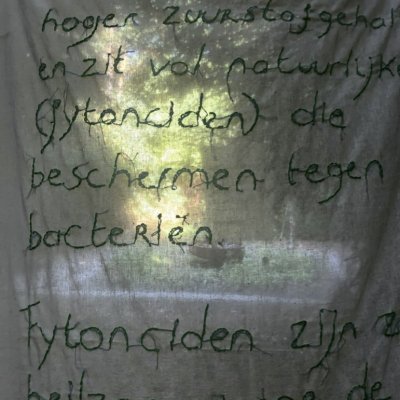 hoger zuurstofgehal
en zit vol natuurlijke
(fytonciden) die
beschermen tegen
bacteriën.
Fytonciden zijn z
de